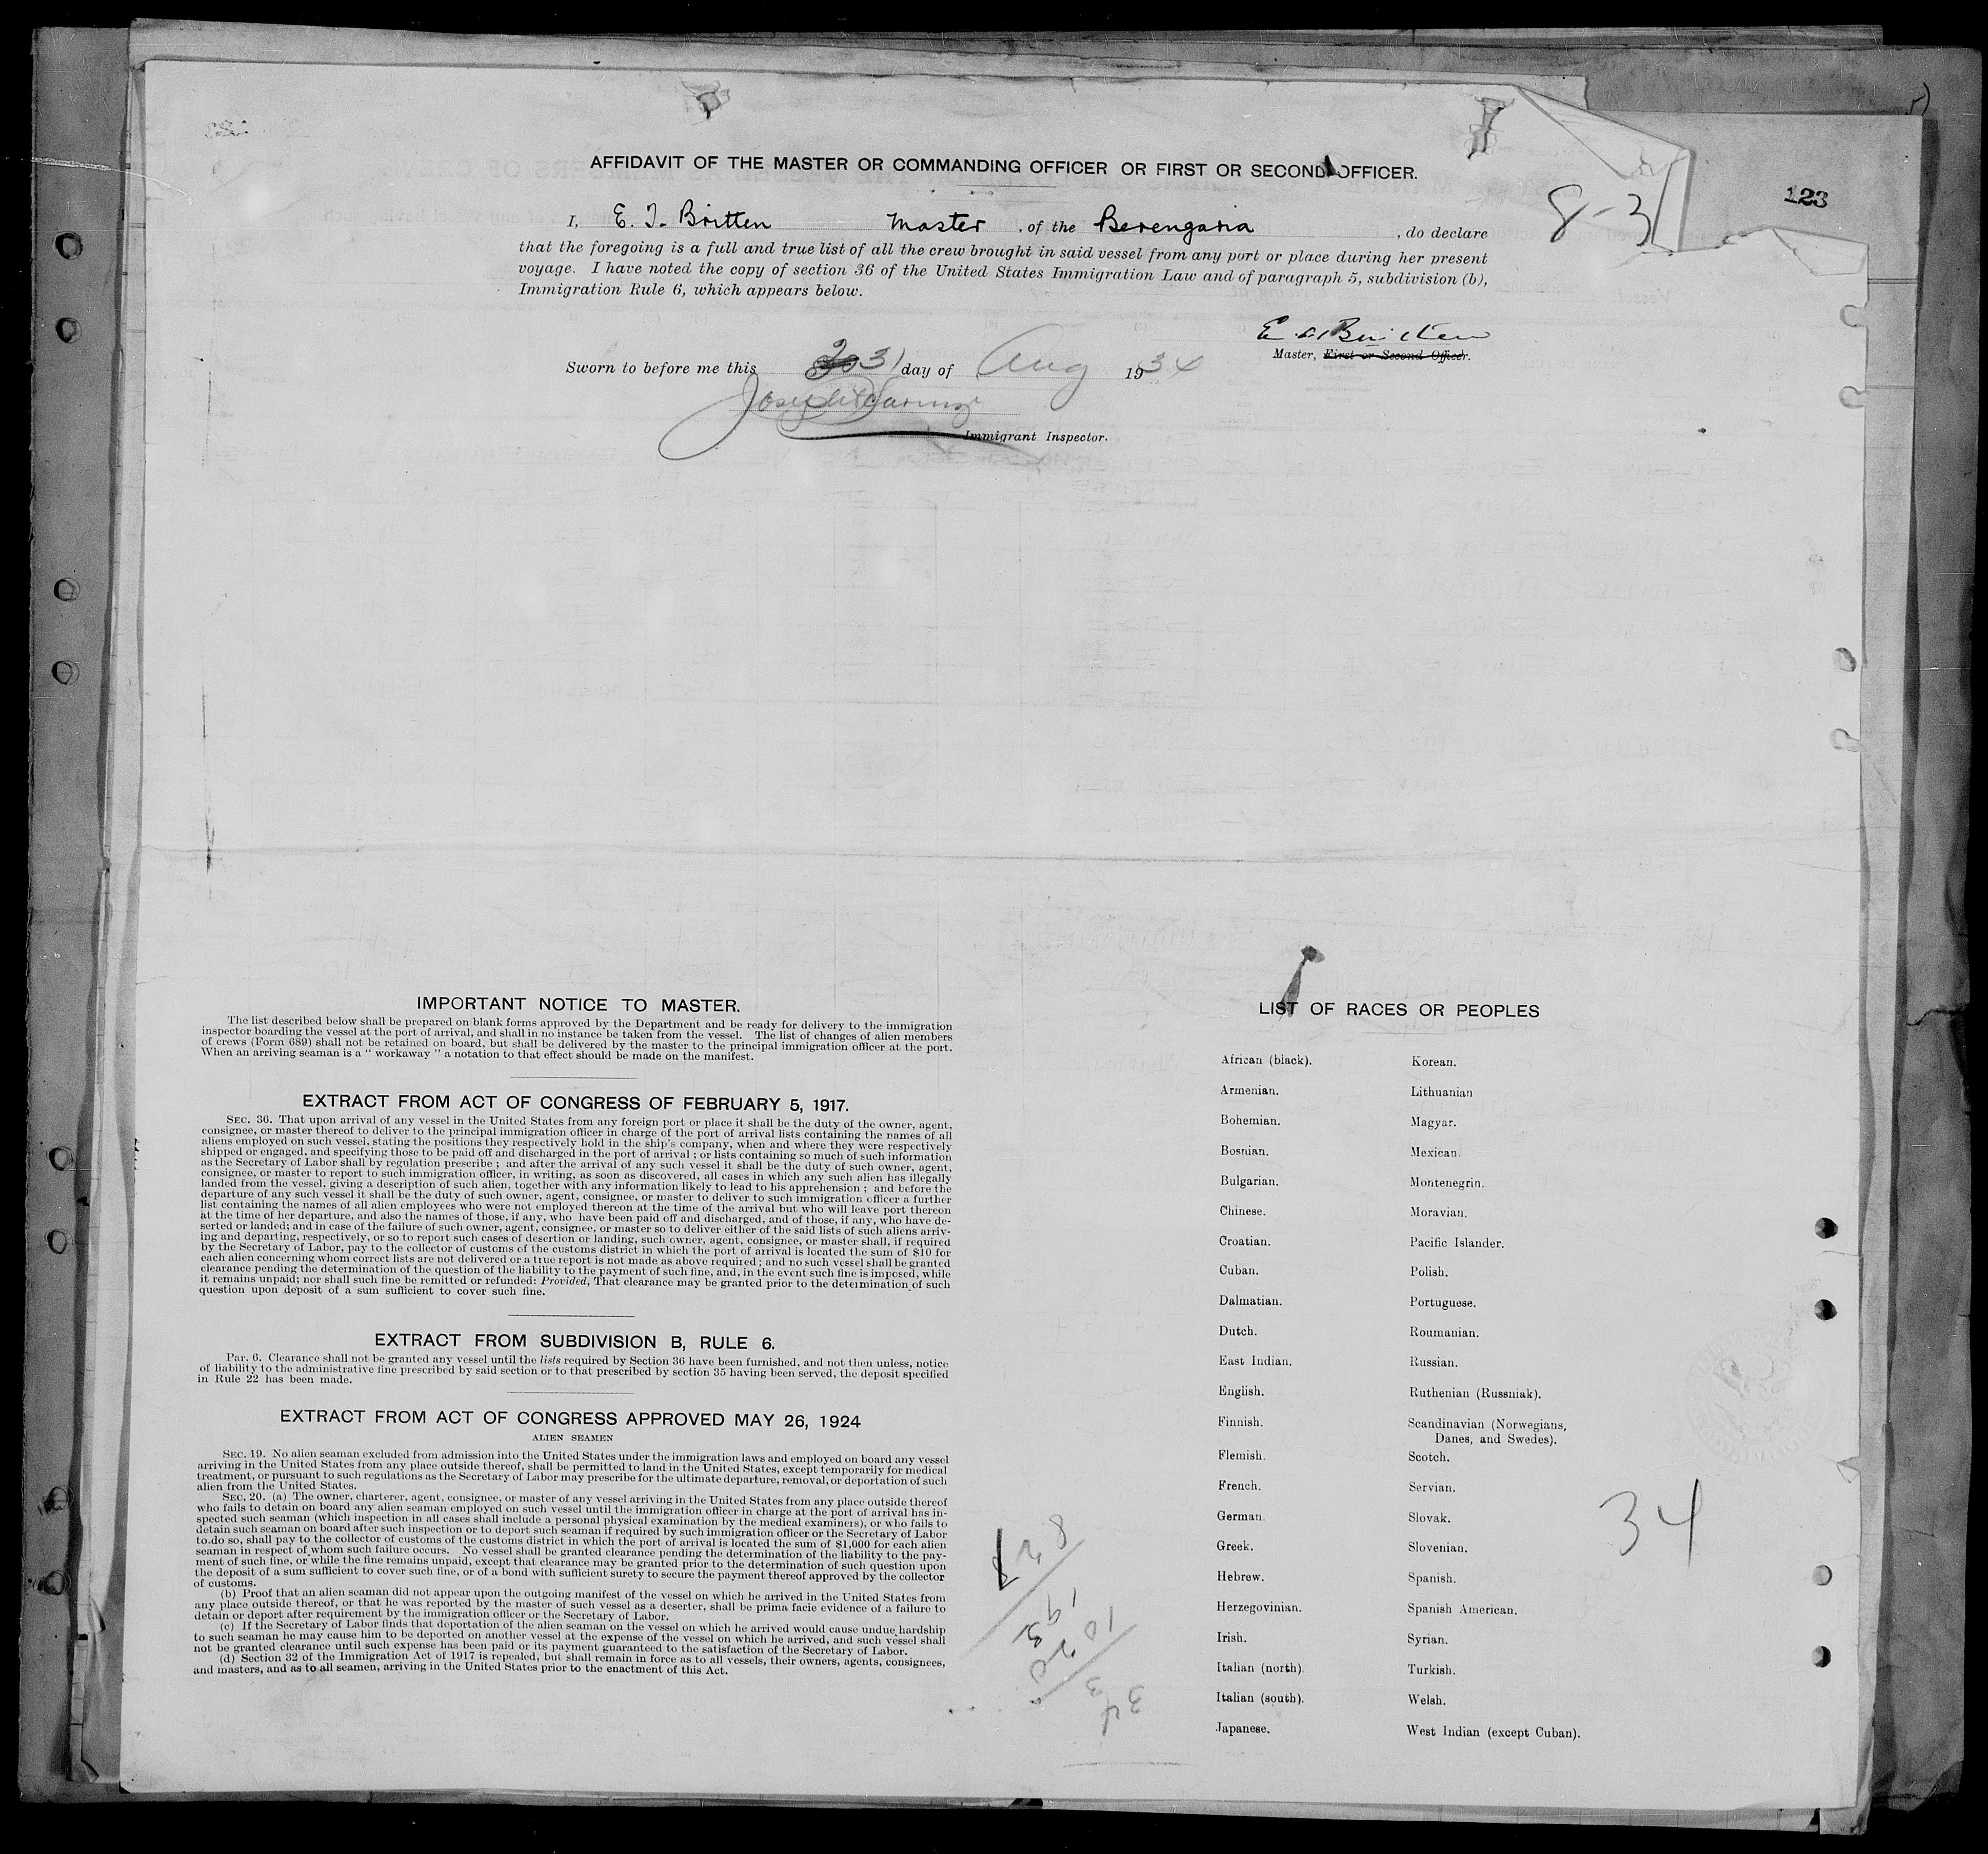 123
AFFIDAVIT OF THE MASTER OR COMMANDING OFFICER OR FIRST OR SECOND OFFICER.
8-31
I, E. T. Britten Master, of the Berengaria, do declare
that the foregoing is a full and true list of all the crew brought in said vessel from any port or place during her present
voyage. I have noted the copy of section 36 of the United States Immigration Law and of paragraph 5, subdivision (b),
Immigration Rule 6, which appears below.
Britten
Master, First or Second Officer.
Sworn to before me this 31 day of Aug 1934
Joseph
Immigrant Inspector.
IMPORTANT NOTICE TO MASTER.
The list described below shall be prepared on blank forms approved by the Department and be ready for delivery to the immigration
inspector boarding the vessel at the port of arrival, and shall in no instance be taken from the vessel. The list of changes of alien members
of crews (Form 689) shall not be retained on board, but shall be delivered by the master to the principal immigration officer at the port.
When an arriving seaman is a " workaway " a notation to that effect should be made on the manifest.
EXTRACT FROM ACT OF CONGRESS OF FEBRUARY 5, 1917.
SEC. 36. That upon arrival of any vessel in the United States from any foreign port or place it shall be the duty of the owner, agent,
consignee, or master thereof to deliver to the principal immigration officer in charge of the port of arrival lists containing the names of all
aliens employed on such vessel, stating the positions they respectively hold in the ship's company, when and where they were respectively
shipped or engaged, and specifying those to be paid off and discharged in the port of arrival ; or lists containing so much of such information
as the Secretary of Labor shall by regulation prescribe ; and after the arrival of any such vessel it shall be the duty of such owner, agent,
consignee, or master to report to such immigration officer, in writing, as soon as discovered, all cases in which any such alien has illegally
landed from the vessel, giving a description of such alien, together with any information likely to lead to his apprehension ; and before the
departure of any such vessel it shall be the duty of such owner, agent, consignee, or master to deliver to such immigration officer a further
list containing the names of all alien employees who were not employed thereon at the time of the arrival but who will leave port thereon
at the time of her departure, and also the names of those, if any, who have been paid off and discharged, and of those, if any, who have de-
serted or landed; and in case of the failure of such owner, agent, consignee, or master so to deliver either of the said lists of such aliens arriv-
ing and departing, respectively, or so to report such cases of desertion or landing, such owner, agent, consignee, or master shall, if required
by the Secretary of Labor, pay to the collector of customs of the customs district in which the port of arrival is located the sum of $10 for
each alien concerning whom correct lists are not delivered or a true report is not made as above required ; and no such vessel shall be granted
clearance pending the determination of the question of the liability to the payment of such fine, and, in the event such fine is imposed, while
it remains unpaid; nor shall such fine be remitted or refunded: Provided, That clearance may be granted prior to the determination of such
question upon deposit of a sum sufficient to cover such fine.
EXTRACT FROM SUBDIVISION B, RULE 6.
Par. 6. Clearance shall not be granted any vessel until the lists required by Section 36 have been furnished, and not then unless, notice
of liability to the administrative fine prescribed by said section or to that prescribed by section 35 having been served, the deposit specified
in Rule 22 has been made.
EXTRACT FROM ACT OF CONGRESS APPROVED MAY 26, 1924
ALIEN SEAMEN
SEC. 19. No alien seaman excluded from admission into the United States under the immigration laws and employed on board any vessel
arriving in the United States from any place outside thereof, shall be permitted to land in the United States, except temporarily for medical
treatment, or pursuant to such regulations as the Secretary of Labor may prescribe for the ultimate departure, removal, or deportation of such
alien from the United States.
SEC. 20. (a) The owner, charterer, agent, consignee, or master of any vessel arriving in the United States from any place outside thereof
who fails to detain on board any alien seaman employed on such vessel until the immigration officer in charge at the port of arrival has in-
spected such seaman (which inspection in all cases shall include a personal physical examination by the medical examiners), or who fails to
detain such seaman on board after such inspection or to deport such seaman if required by such immigration officer or the Secretary of Labor
to do so, shall pay to the collector of customs of the customs district in which the port of arrival is located the sum of $1,000 for each alien
seaman in respect of whom such failure occurs. No vessel shall be granted clearance pending the determination of the liability to the pay-
ment of such fine, or while the fine remains unpaid, except that clearance may be granted prior to the determination of such question upon
the deposit of a sum sufficient to cover such fine, or of a bond with sufficient surety to secure the payment thereof approved by the collector
of customs.
(b) Proof that an alien seaman did not appear upon the outgoing manifest of the vessel on which he arrived in the United States from
any place outside thereof, or that he was reported by the master of such vessel as a deserter, shall be prima facie evidence of a failure to
detain or deport after requirement by the immigration officer or the Secretary of Labor.
(c) If the Secretary of Labor finds that deportation of the alien seaman on the vessel on which he arrived would cause undue hardship
to such seaman he may cause him to be deported on another vessel at the expense of the vessel on which he arrived, and such vessel shall
not be granted clearance until such expense has been paid or its payment guaranteed to the satisfaction of the Secretary of Labor.
(d) Section 32 of the Immigration Act of 1917 is repealed, but shall remain in force as to all vessels, their owners, agents, consignees,
and masters, and as to all seamen, arriving in the United States prior to the enactment of this Act.
LIST OF RACES OR PEOPLES
African (black).
Armenian.
Bohemian.
Bosnian.
Bulgarian.
Chinese.
Croatian.
Cuban.
Dalmatian.
Dutch.
East Indian.
English.
Finnish.
Flemish.
French.
German.
Greek.
Hebrew.
Herzegovinian.
Irish.
Italian (north).
Italian (south).
Japanese.
Korean.
Lithuanian
Magyar.
Mexican.
Montenegrin.
Moravian.
Pacific Islander.
Polish.
Portuguese.
Roumanian.
Russian.
Ruthenian (Russniak).
Scandinavian (Norwegians,
Danes, and Swedes).
Scotch.
Servian.
Slovak.
Slovenian.
Spanish.
Spanish American.
Syrian.
Turkish.
Welsh.
West Indian (except Cuban).
34